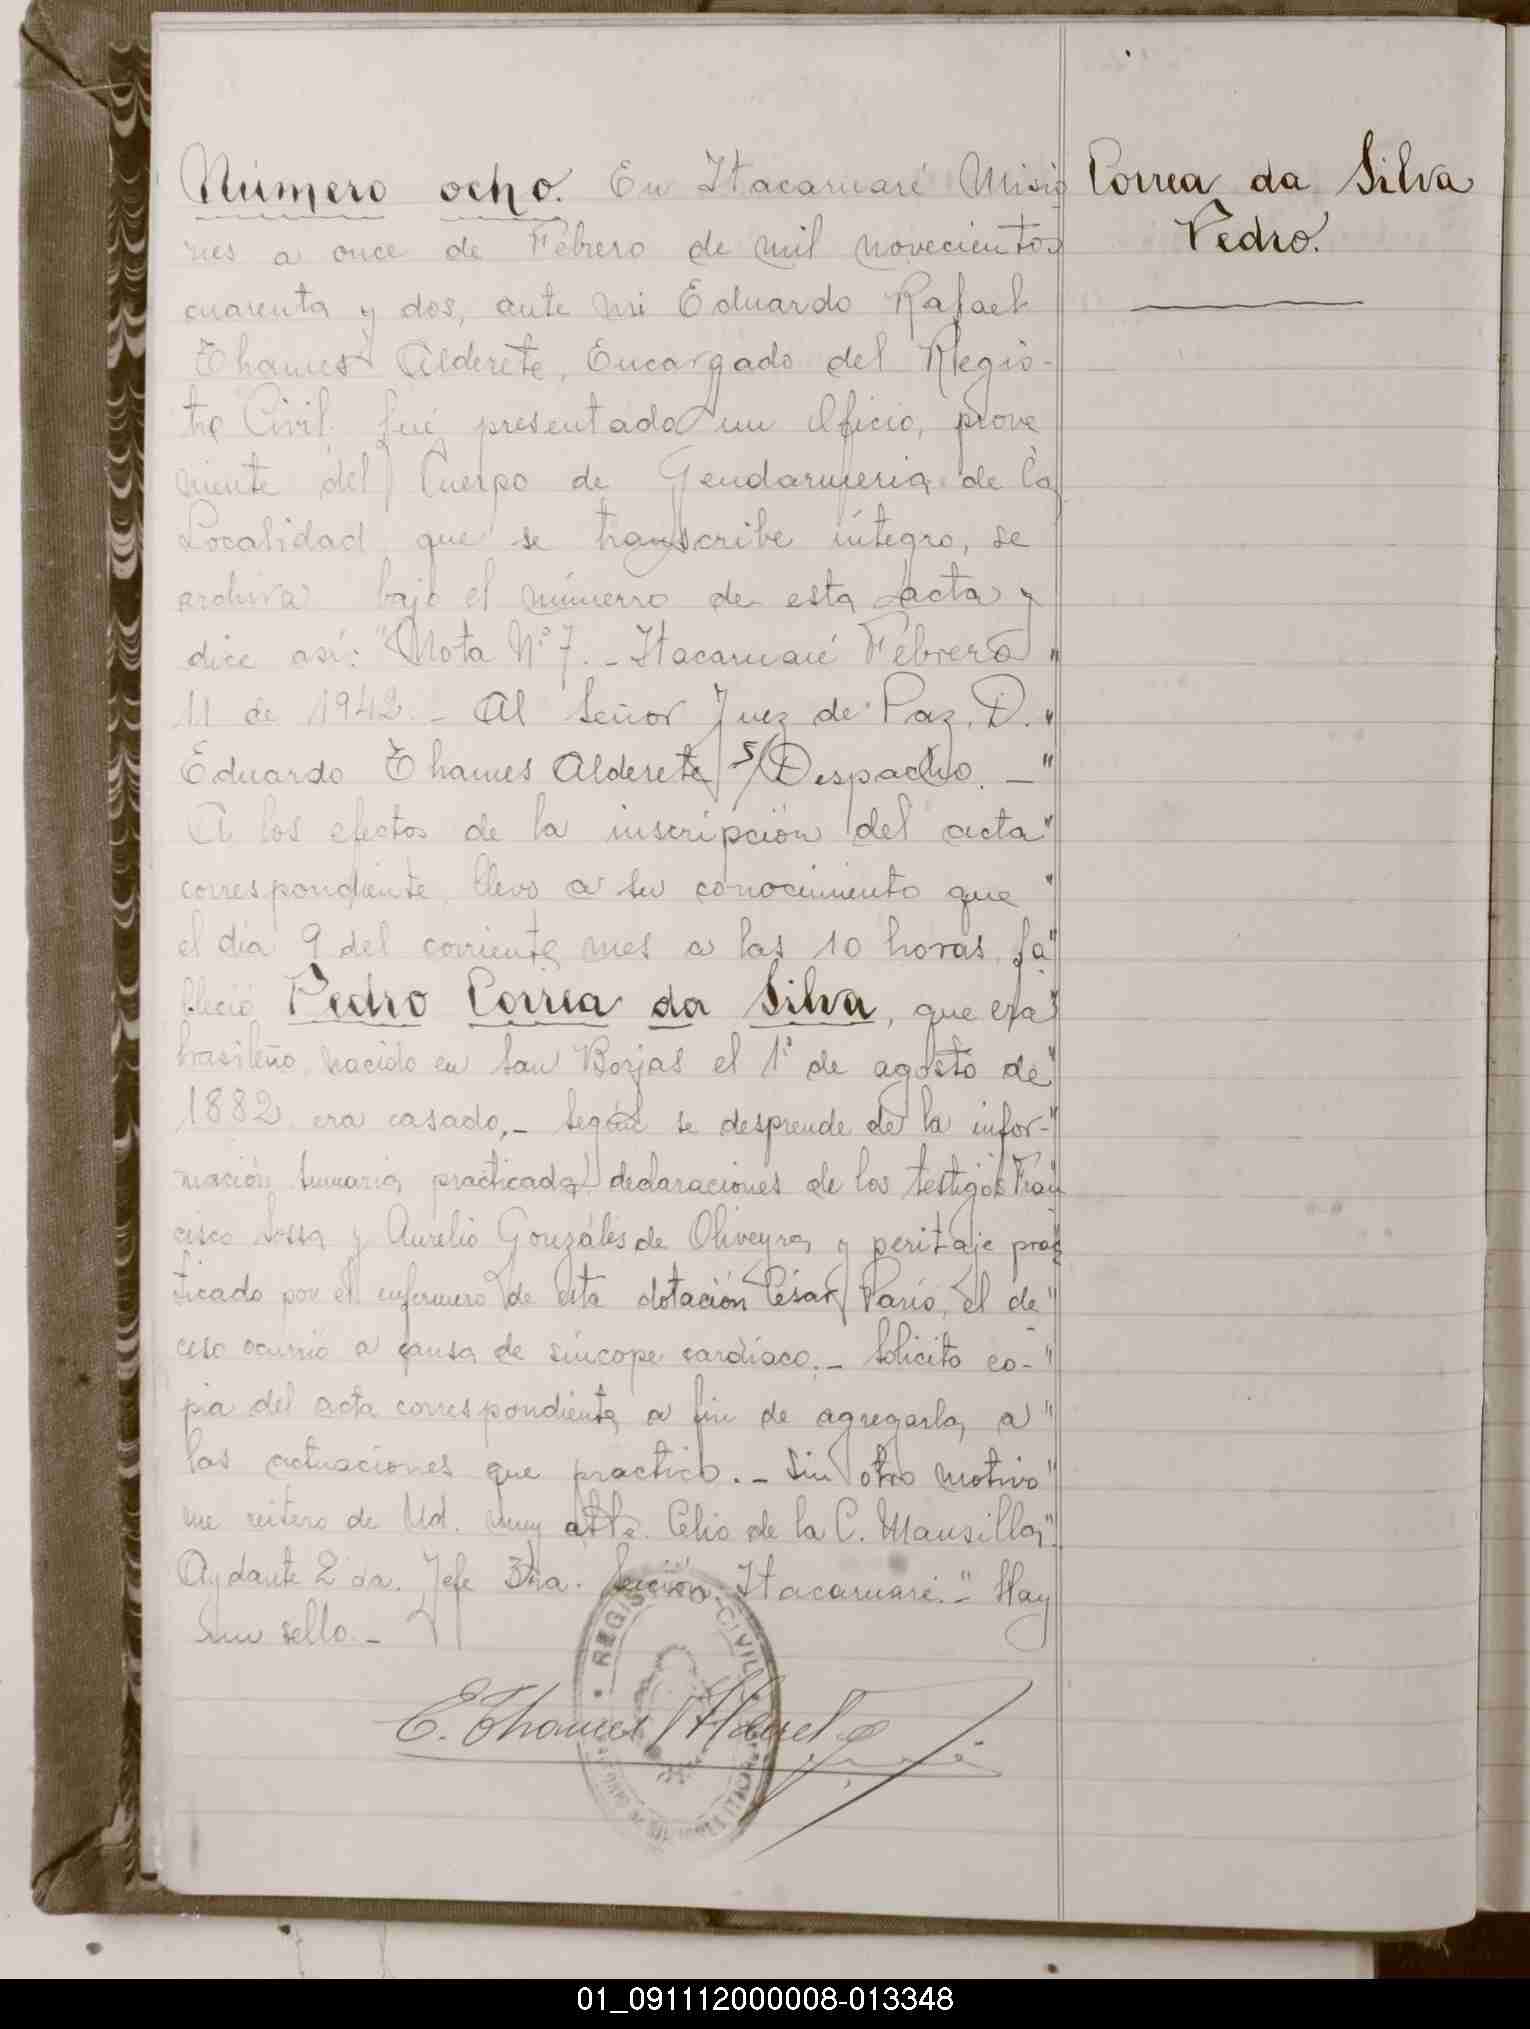 Número ocho. En Itacaruaré Misio
nes a once de Febrero de mil novecientos
cuarenta y dos, ante mi Eduardo Rafael
Thames Alderete, Encargado del Regis-
tro Civil fué presentado un oficio, prove
niente del Cuerpo de Gendarmeria de la
Localidad que se transcribe integro, se
archiva bajo el número de esta acta y
dice así: "Nota N° 7. - Itacaruaré Febrero "
11 de 1942. - Al Señor Juez de Paz. D. "
Eduardo Thames Alderete S/Despacho. - "
A los efectos de la inscripción del acta "
correspondiente, llevo a su conocimiento que "
el día 9 del corriente mes a las 10 horas, fa "
lleció Pedro Correa da Silva, que era "
brasileño, nacido en San Borjas el 1° de agosto de "
1882, era casado,- Según se desprende de la infor- "
mación sumaria practicada, declaraciones de los testigos Fran
cisco Sossa y Aurelio Gonzáles de Oliveyra, y peritaje prac
ticado por el enfermero de esta dotación César Pario, el de "
ceso ocurrió a causa de síncope cardíaco.- Solicito co- "
pia del acta correspondiente a fin de agregarla a "
las actuaciones que practico. - Sin otro motivo "
me reitero de Ud. muy atte. Celio de la C. Mansilla, "
Aydante 2 da. Jefe 3ra. Sección. Itacaruaré. - " Hay
un sello. -
E. Thames Alderete
REGISTRO CIVIL
Correa da Silva
Pedro.
01_091112000008-013348